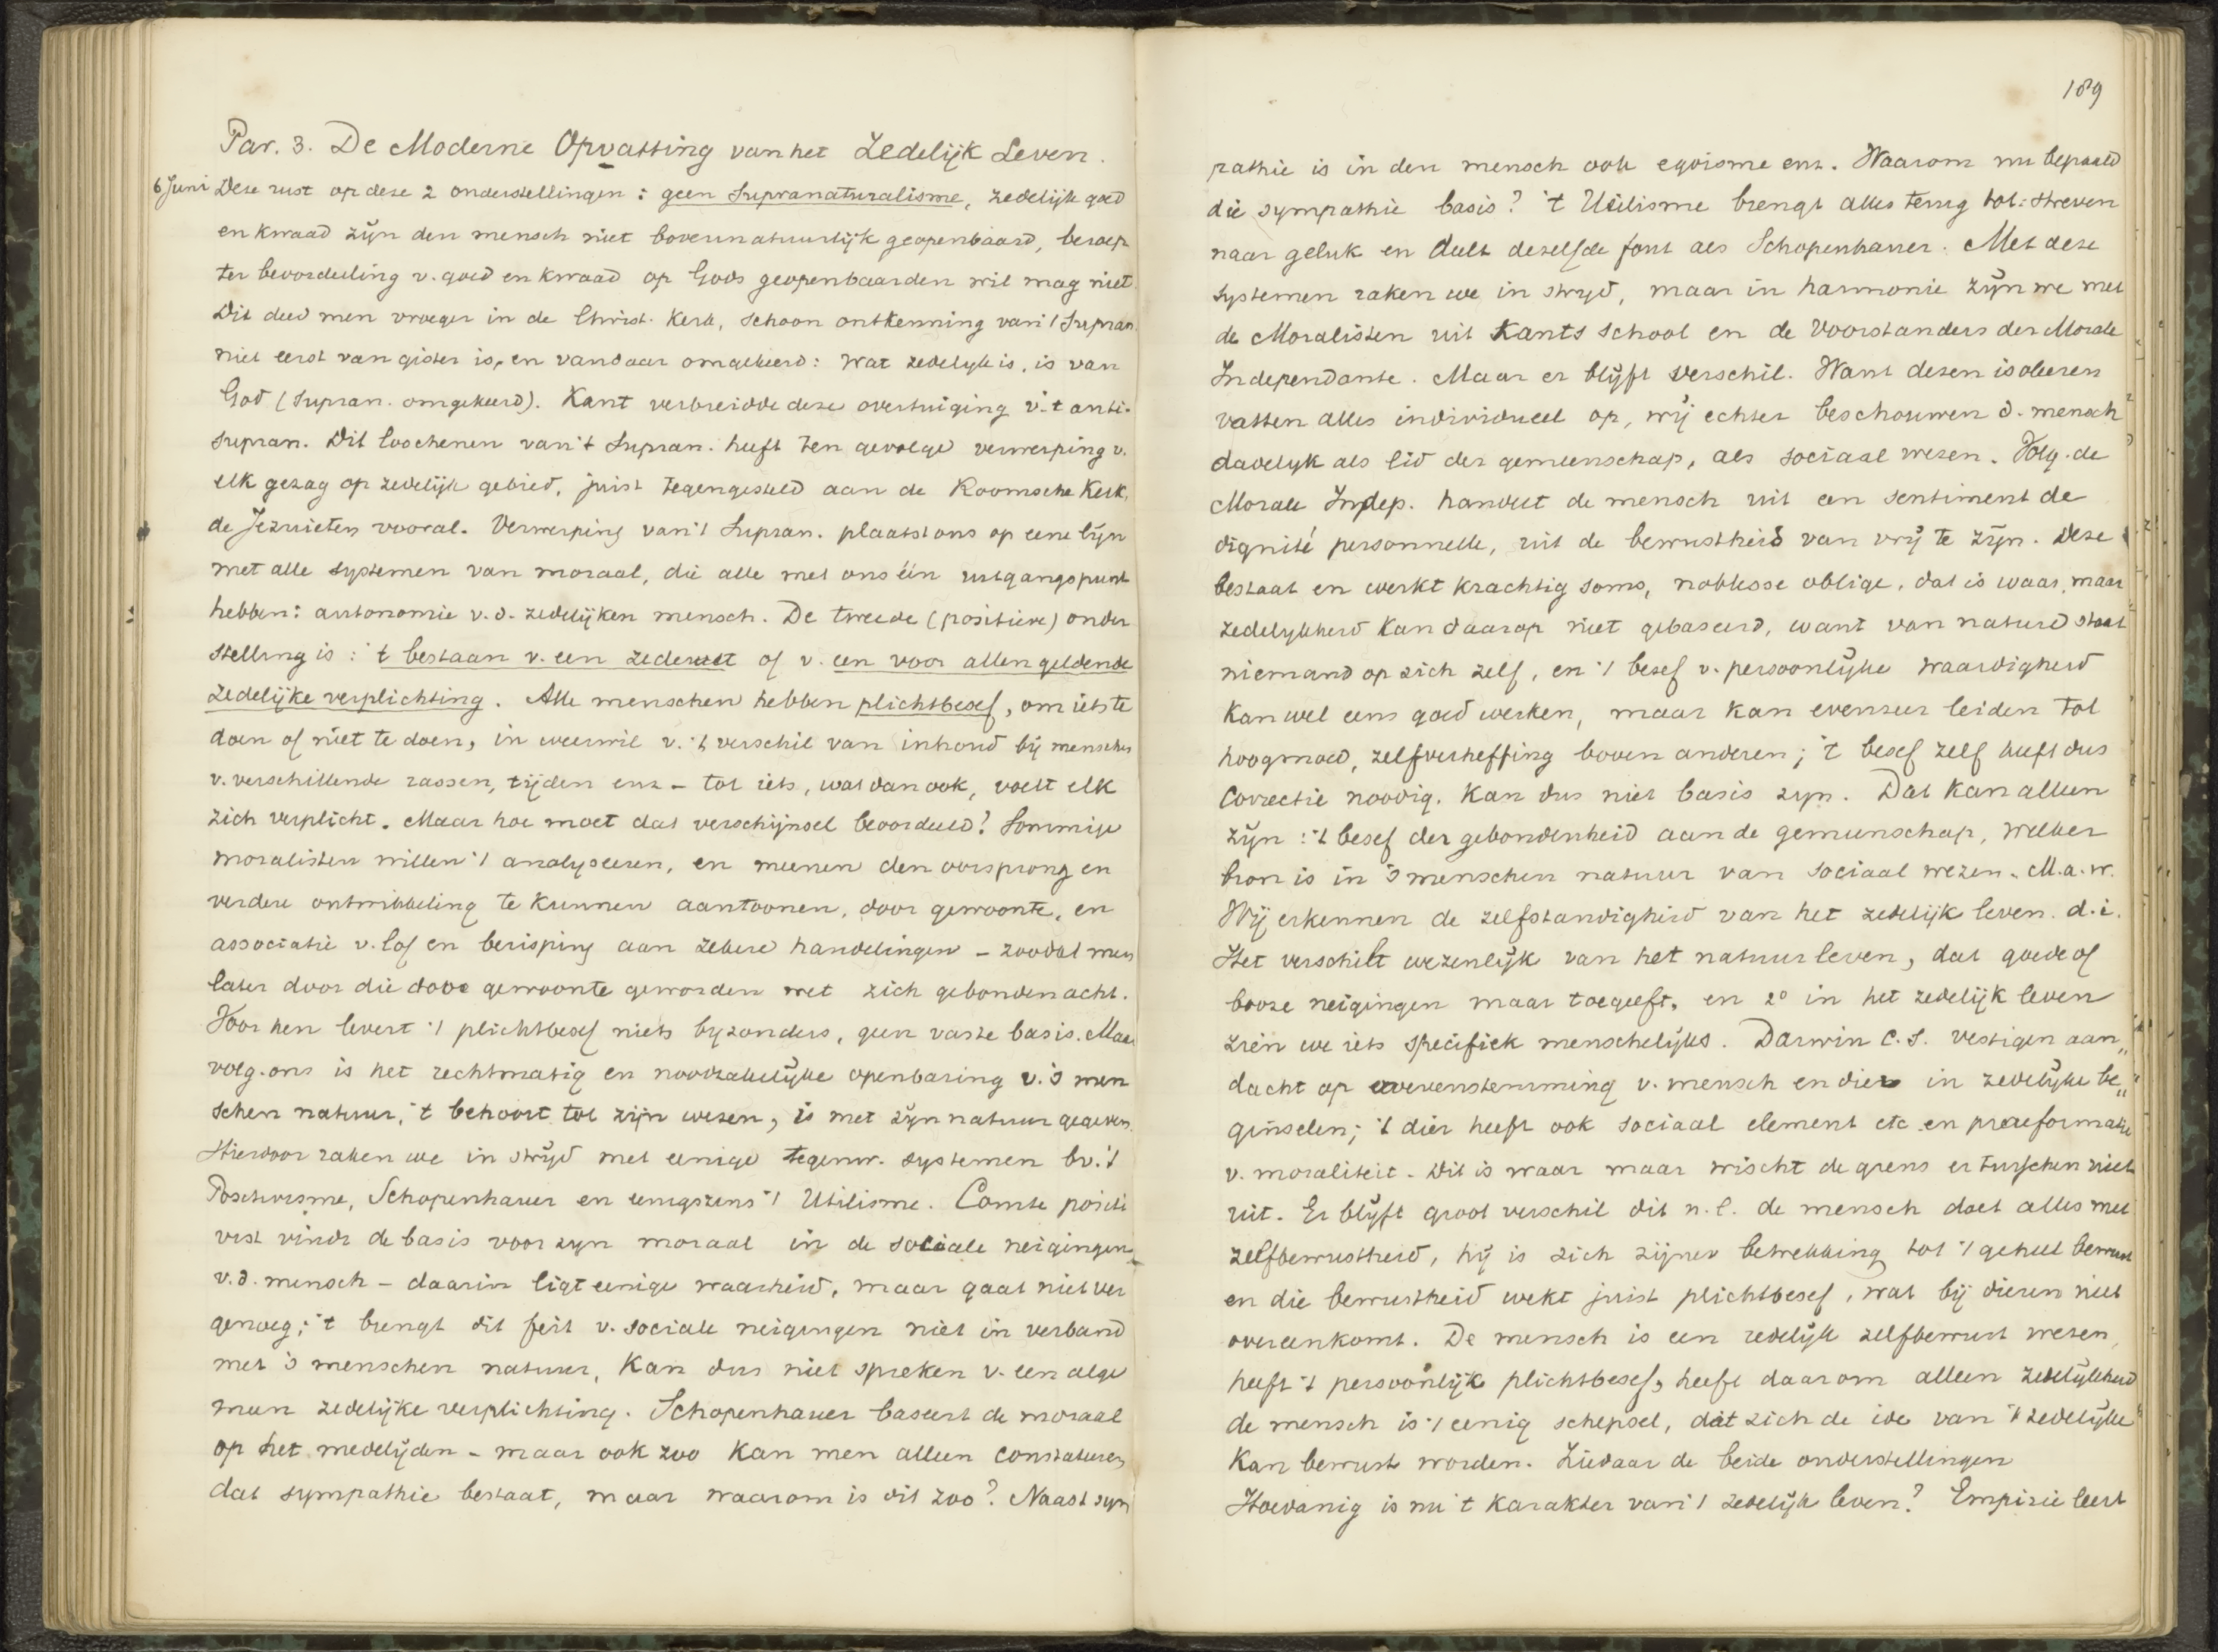 Par. 3. De Moderne Opvatting van het Zedelijk Leven.
6 Juni Deze rust op deze 2 onderstellingen: geen Supranaturalisme, zedelijk goed
en kwaad zijn den mensch niet bovennatuurlijk geopenbaard, beroep
ter beoordeeling v. goed en kwaad op Gods geopenbaarden wil mag niet.
Dit deed men vroeger in de Christ. Kerk, schoon ontkenning van 't Supran.
niet eerst van gister is, en vandaar omgekeerd: wat zedelijk is, is van
God (supran. omgekeerd). Kant verbreidde deze overtuiging v. 't anti-
supran. Dit loochenen van 't Supran. heeft ten gevolge verwerping v.
elk gezag op zedelijk gebied, juist tegengesteld aan de Roomsche Kerk,
de Jezuieten vooral. Verwerping van 't Supran. plaatst ons op eene lijn
met alle systemen van moraal, die alle met ons één uitgangspunt
hebben: autonomie v.d. zedelijken mensch. De tweede (positieve) onder
stelling is: 't bestaan v. een zedewet of v. een voor allen geldende
zedelijke verplichting. Alle menschen hebben plichtbesef, om iets te
doen of niet te doen, in weerwil v. 't verschil van inhoud bij menschen
v. verschillende rassen, tijden enz - tot iets, wat dan ook, voelt elk
zich verplicht. Maar hoe moet dat verschijnsel beoordeeld? Sommige
moralisten willen 't analyseeren, en meenen den oorsprong en
verdere ontwikkeling te kunnen aantoonen, door gewoonte, en
associatie v. lof en berisping aan zekere handelingen - zoodat men
later door die door gewoonte geworden wet zich gebonden acht.
Voor hen levert 't plichtbesef niets byzonders, geen vaste basis. Maar
volg. ons is het rechtmatig en noodzakelijke openbaring v. 's men
schen natuur, 't behoort tot zijn wezen, is met zijn natuur gegeven.
Hierdoor raken we in strijd met eenige tegenw. systemen bv. 't
Positivisme, Schopenhauer en eenigszins 't Utilisme. Comte positi
vist vindt de basis voor zyn moraal in de sociale neigingen
v.d. mensch - daarin ligt eenige waarheid, maar gaat niet ver
genoeg; 't brengt dit feit v. sociale neigingen niet in verband
met 's menschen natuur, kan dus niet spreken v. een alge
meen zedelijke verplichting. Schopenhauer baseert de moraal
op het medelijden - maar ook zoo kan men alleen constateeren
dat sympathie bestaat, maar waarom is dit zoo? Naast sym
189
pathie is in den mensch ook egoisme enz. Waarom nu bepaald
die sympathie basis? 't Utilisme brengt alles terug tot: streven
naar geluk en deelt dezelfde fout als Schopenhauer. Met deze
systemen raken we in stryd, maar in harmonie zijn we met
de Moralisten uit Kants school en de voorstanders der Morale
Independante. Maar er blijft verschil. Want dezen isoleeren
vatten alles individueel op, wij echter beschouwen d. mensch
dadelyk als lid der gemeenschap, als sociaal wezen. Volg. de
Morale Indep. handelt de mensch uit een sentiment de
dignité personnelle, uit de bewustheid van vrij te zijn. Deze
bestaat en werkt krachtig soms, noblesse oblige, dat is waar, maar
zedelykheid kan daarop niet gebaseerd, want van nature staat
niemand op zich zelf, en 't besef v. persoonlijke waardigheid
kan wel eens goed werken, maar kan evenzeer leiden tot
hoogmoed, zelfverheffing boven anderen; 't besef zelf heeft dus
correctie noodig, kan dus niet basis zyn. Dat kan alleen
zijn: 't besef der gebondenheid aan de gemeenschap, welker
bron is in 's menschen natuur van sociaal wezen. M.a.w.
Wij erkennen de zelfstandigheid van het zedelijk leven. d.i.
Het verschilt wezenlijk van het natuurleven, dat goede of
booze neigingen maar toegeeft, en 2° in het zedelijk leven
zien we iets specifiek menschelijks. Darwin c.s. vestigen aan„
dacht op overeenstemming v. mensch en dier in zedelijke be„
ginselen; 't dier heeft ook sociaal element etc. en praeformatie
v. moraliteit. Dit is waar maar wischt de grens er tusschen niet
uit. Er blijft groot verschil dit n.l. de mensch doet alles met
zelfbewustheid, hij is zich zijner betrekking tot 't geheel bewust
en die bewustheid wekt juist plichtbesef, wat bij dieren niet
overeenkomt. De mensch is een redelijk zelfbewust wezen,
heeft 't persoonlijk plichtbesef, heeft daarom alleen zedelijkheid
de mensch is 't eenig schepsel, dat zich de idee van 't zedelijke
kan bewust worden. Ziedaar de beide onderstellingen
Hoedanig is nu 't karakter van 't zedelijk leven? Empirie leert